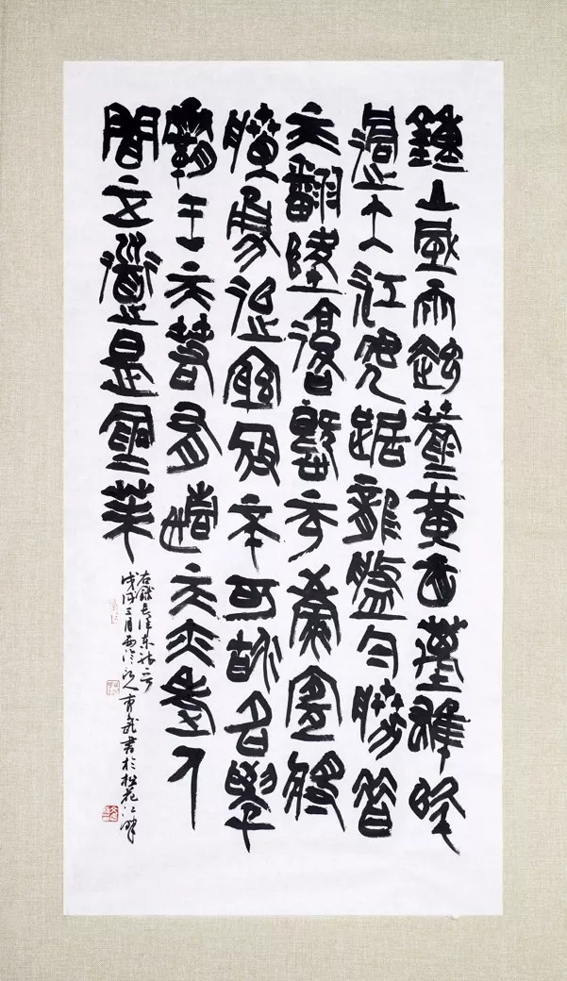 鐘山風雨起蒼黃百萬雄師
過大江虎踞龍盤今勝昔
天翻地覆慨而慷宜將
賸勇追窮寇不可沽名學
霸王天若有情天亦老人
間正道是滄桑
右錄毛澤東詩
戊戌三月西泠印人書於松花江畔